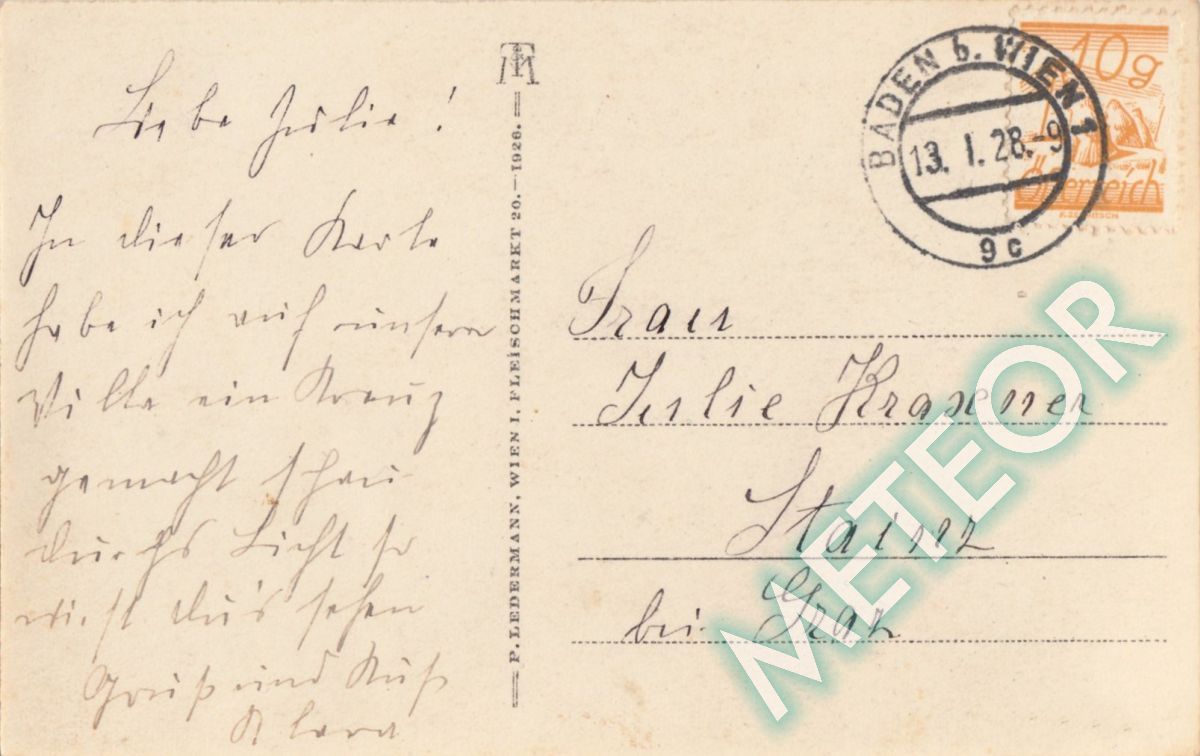 Liebe Julie!
In dieser Karte
habe ich auf unsere
Villa ein Kreuz
gemacht schau
durchs Licht so
wirst du's sehen
Gruß und Kuß
Klara
P. LEDERMANN, WIEN I, FLEISCHMARKT 20.—1926.
BADEN b. WIEN 1
13. I. 28.-9
9c
10g
Österreich
Frau
Julie Kraxner
Stainz
bei Graz
METEOR